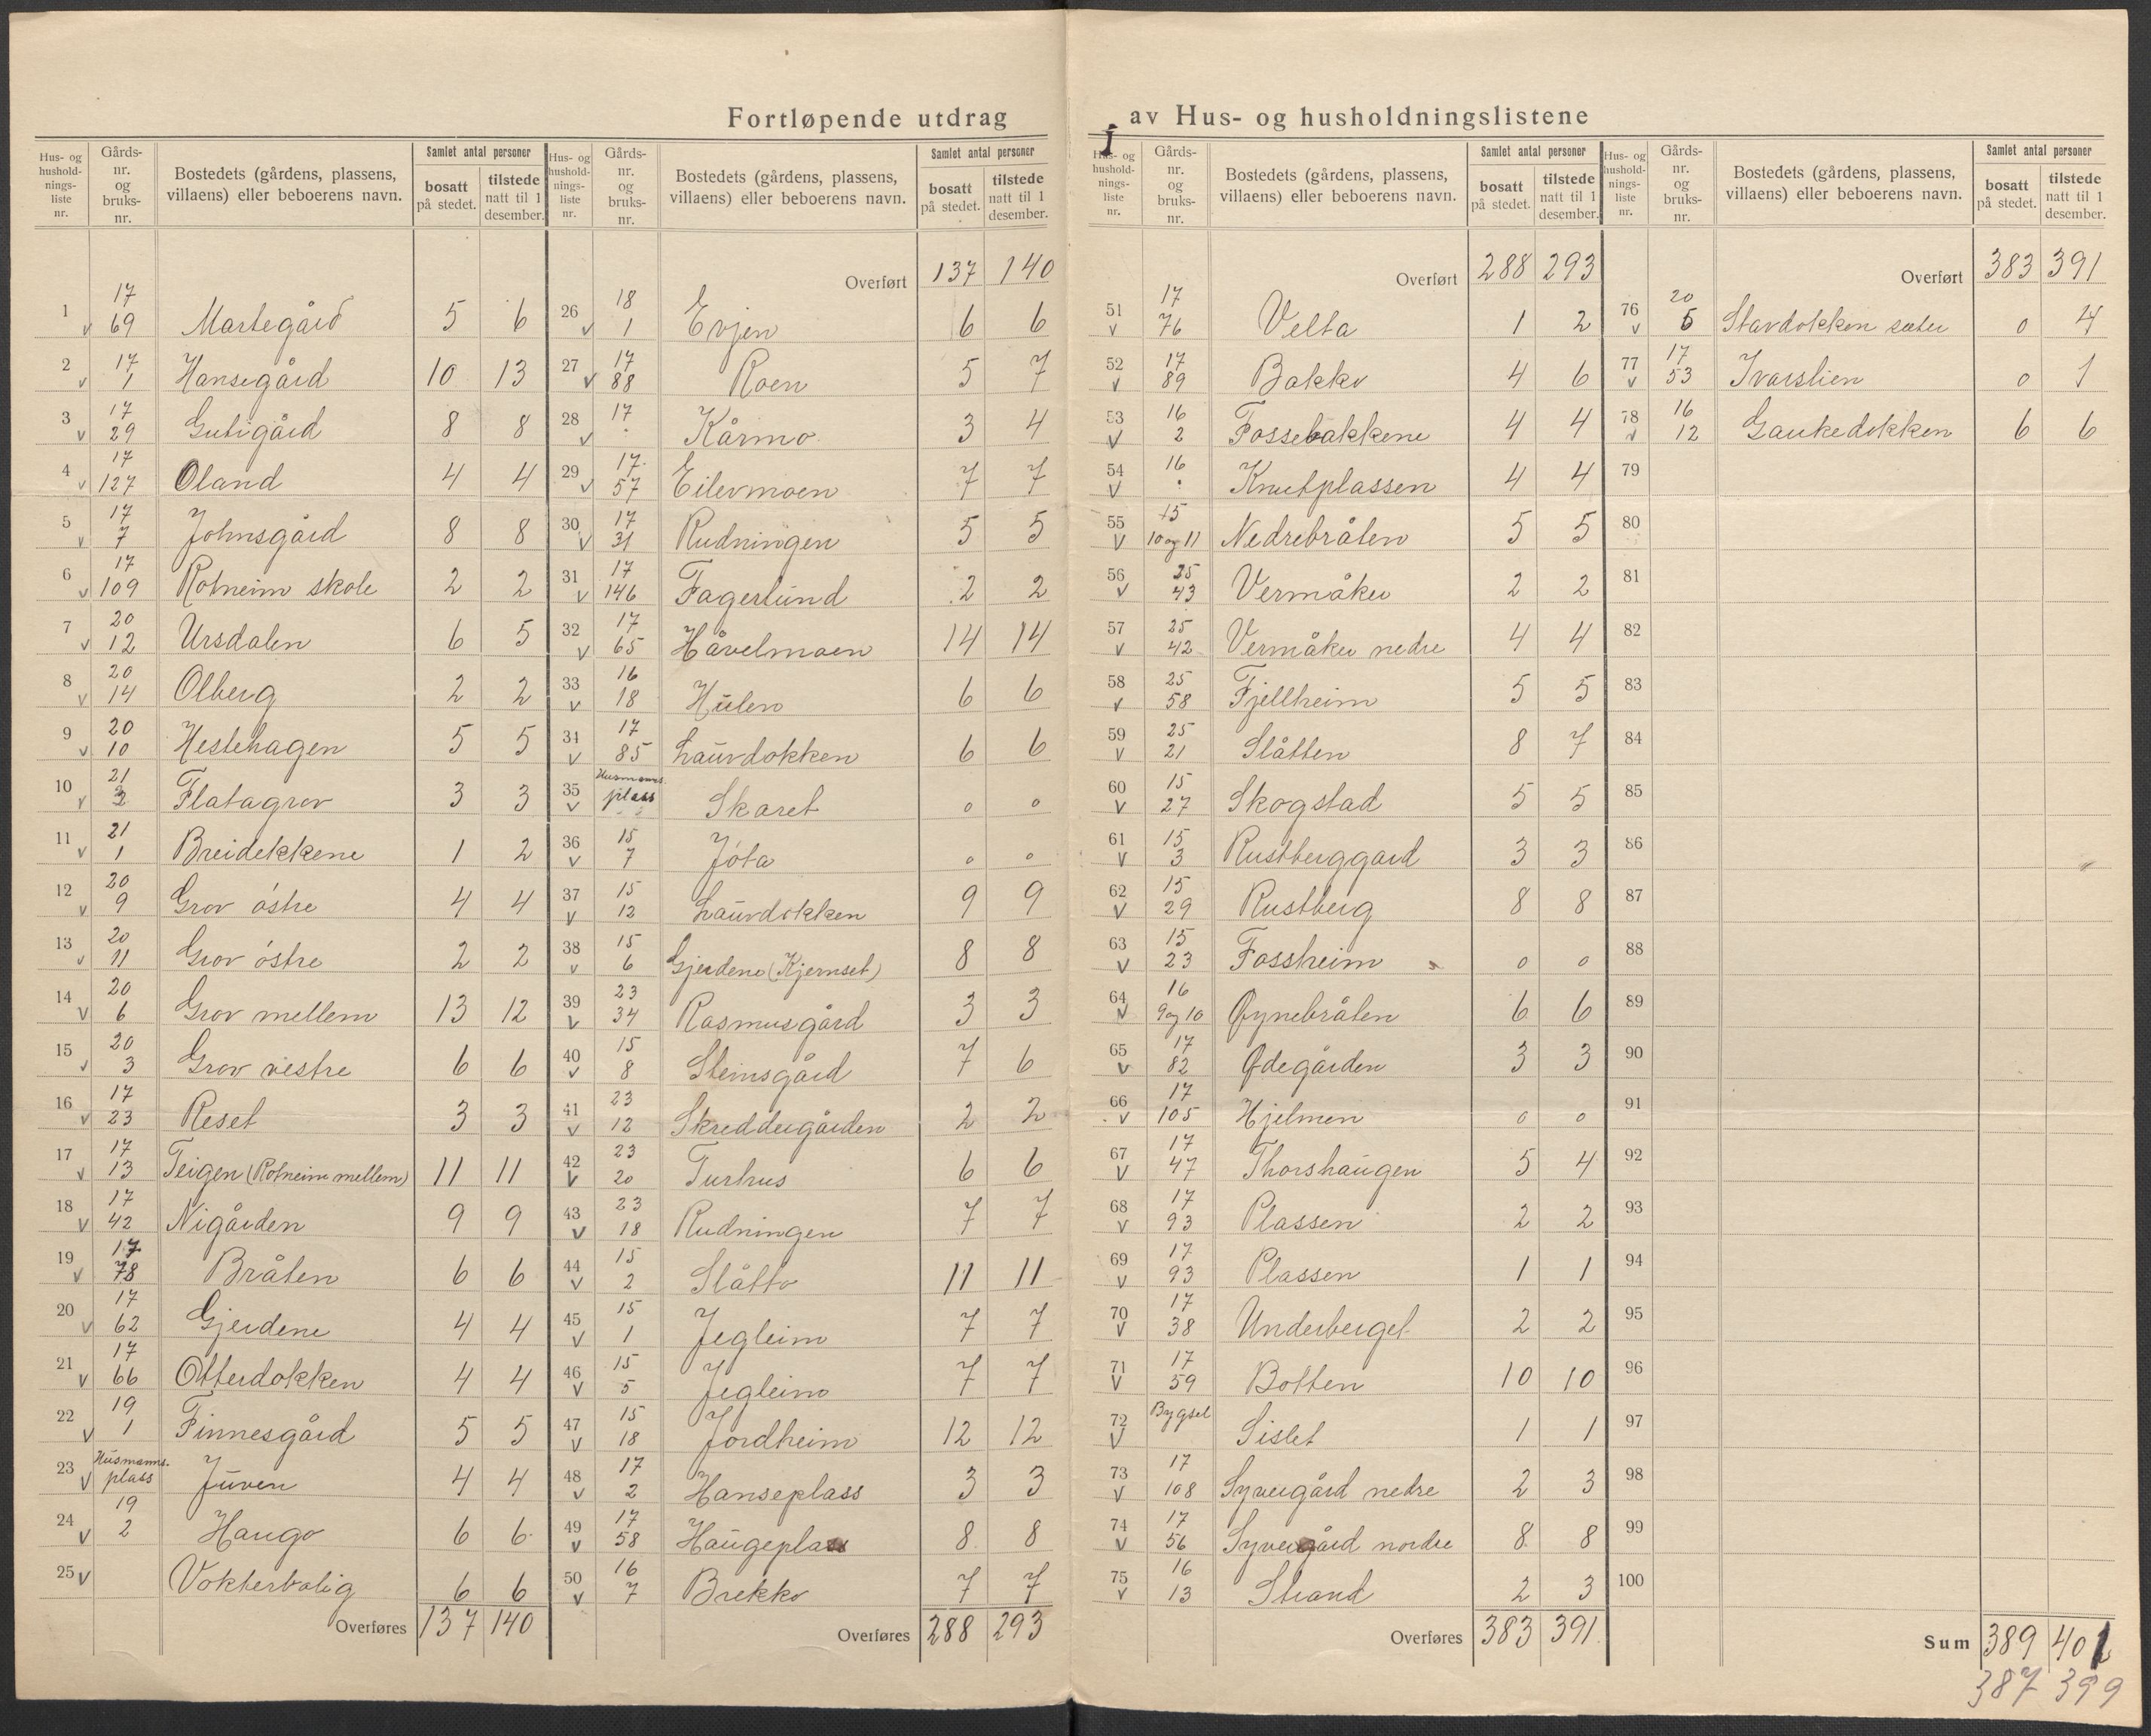 Fortløpende utdrag av Hus- og husholdningslistene
Hus- og husholdnings-liste nr. Gårds-nr. og bruks-nr. Bostedets (gårdens, plassens, villaens) eller beboerens navn. Samlet antal personer bosatt på stedet. tilstede natt til 1 desember.
1 v 17 69 Martegård 5 6
2 v 17 1 Hansegård 10 13
3 v 17 29 Gutigård 8 8
4 v 17 127 Oland 4 4
5 v 17 7 Johnsgård 8 8
6 v 17 109 Rotneim skole 2 2
7 v 20 12 Ursdalen 6 5
8 v 20 14 Olberg 2 2
9 v 20 10 Hestehagen 5 5
10 v 21 Flatagrov 3 3
11 v 21 1 Breidokkene 1 2
12 v 20 9 Grov östre 4 4
13 v 20 11 Grov östre 2 2
14 v 20 6 Grov mellem 13 12
15 v 20 3 Grov vestre 6 6
16 v 17 23 Reset 3 3
17 v 17 13 Teigen (Rotneim mellem) 11 11
18 v 17 42 Nigården 9 9
19 v 17 78 Bråten 6 6
20 v 17 62 Gjerdene 4 4
21 v 17 66 Otterdokken 4 4
22 v 19 1 Finnesgård 5 5
23 v Husmanns-plass Juven 4 4
24 v 19 2 Haugo 6 6
25 v Vokterbolig 6 6
Overføres 137 140
Hus- og husholdnings-liste nr. Gårds-nr. og bruks-nr. Bostedets (gårdens, plassens, villaens) eller beboerens navn. Samlet antal personer bosatt på stedet. tilstede natt til 1 desember.
Overført 137 140
26 v 18 1 Evjen 6 6
27 v 17 88 Roen 5 7
28 v 17 Kårmo 3 4
29 v 17 57 Eilevmoen 7 7
30 v 17 31 Rudningen 5 5
31 v 17 146 Fagerlund 2 2
32 v 17 65 Håvelmoen 14 14
33 v 16 18 Hulen 6 6
34 v 17 85 Laurdokken 6 6
35 v Husmanns-plass Skaret 0 0
36 v 15 7 Jöta 0 0
37 v 15 12 Laurdokken 9 9
38 v 15 6 Gjerdene (Kjernset) 8 8
39 v 23 34 Rasmusgård 3 3
40 v 15 8 Steinsgård 7 6
41 v 23 12 Skreddergården 2 2
42 v 23 20 Turhus 6 6
43 v 23 18 Rudningen 7 7
44 v 15 2 Slåtto 11 11
45 v 15 1 Jegleim 7 7
46 v 15 5 Jegleim 7 7
47 v 15 18 Jordheim 12 12
48 v 17 2 Hanseplass 3 3
49 v 17 58 Haugeplass 8 8
50 v 16 7 Brekko 7 7
Overføres 288 293
Hus- og husholdnings-liste nr. Gårds-nr. og bruks-nr. Bostedets (gårdens, plassens, villaens) eller beboerens navn. Samlet antal personer bosatt på stedet. tilstede natt til 1 desember.
Overført 288 293
51 v 17 76 Velta 1 2
52 v 17 89 Bakko 4 6
53 v 16 2 Fossebakkene 4 4
54 v 16 Knutplassen 4 4
55 v 15 10 og 11 Nedrebråten 5 5
56 v 25 43 Vermåker 2 2
57 v 25 42 Vermåker nedre 4 4
58 v 25 58 Fjellheim 5 5
59 v 25 21 Slåtten 8 7
60 v 15 27 Skogstad 5 5
61 v 15 3 Rustberggard 3 3
62 v 15 29 Rustberg 8 8
63 v 15 23 Fossheim 0 0
64 v 16 9 og 10 Øynebråten 6 6
65 v 17 82 Ødegården 3 3
66 v 17 105 Hjelmen 0 0
67 v 17 47 Thorshaugen 5 4
68 v 17 93 Plassen 2 2
69 v 17 93 Plassen 1 1
70 v 17 38 Underberget 2 2
71 v 17 59 Botten 10 10
72 v Bygsel Sislet 1 1
73 v 17 108 Syvergård nedre 2 3
74 v 17 56 Syvergård nordre 8 8
75 v 16 13 Strand 2 3
Overføres 383 391
Hus- og husholdnings-liste nr. Gårds-nr. og bruks-nr. Bostedets (gårdens, plassens, villaens) eller beboerens navn. Samlet antal personer bosatt på stedet. tilstede natt til 1 desember.
Overført 383 391
76 v 20 5 Stavdokken sæter 0 4
77 v 17 53 Ivarslien 0 1
78 v 16 12 Gaukedokken 6 6
79
80
81
82
83
84
85
86
87
88
89
90
91
92
93
94
95
96
97
98
99
100
Sum 389 402
387 399